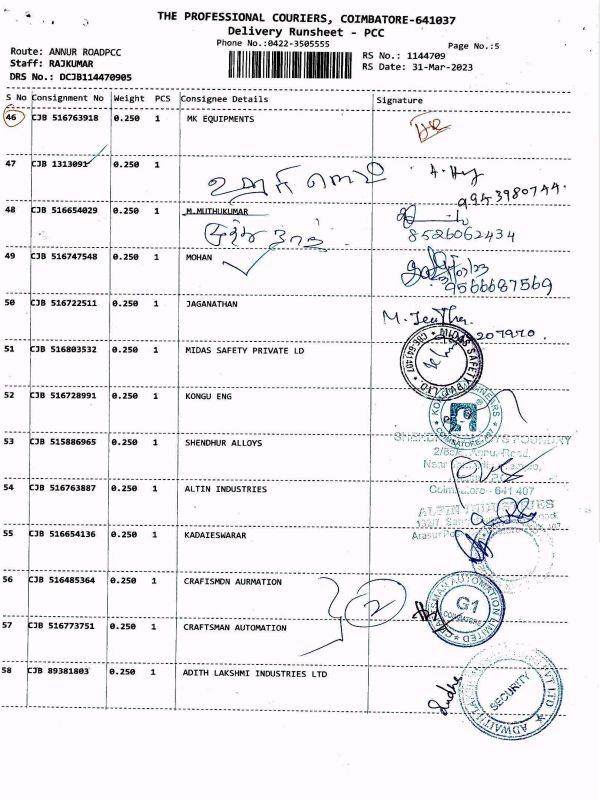 THE PROFESSIONAL COURIERS, COIMBATORE-641037
Delivery Runsheet - PCC
Phone No.:0422-3505555
Page No.:5
Route: ANNUR ROADPCC
RS No.: 1144709
Staff: RAJKUMAR
RS Date: 31-Mar-2023
DRS No.: DCJB114470905
S No Consignment No Weight PCS Consignee Details Signature
46 CJB 516763918 0.250 1 MK EQUIPMENTS
47 CJB 1313091 0.250 1
9943980744.
48 CJB 516654029 0.250 1 M.MUTHUKUMAR
8526062434
49 CJB 516747548 0.250 1 MOHAN
9566687569
50 CJB 516722511 0.250 1 JAGANATHAN
207970.
51 CJB 516803532 0.250 1 MIDAS SAFETY PRIVATE LD
MIDAS SAFETY PVT. LTD. CBE-641407
52 CJB 516728991 0.250 1 KONGU ENG
COIMBATORE
53 CJB 515886965 0.250 1 SHENDHUR ALLOYS
Coimbatore - 641 407
54 CJB 516763887 0.250 1 ALTIN INDUSTRIES
ALTIN INDUSTRIES
55 CJB 516654136 0.250 1 KADAIESWARAR
56 CJB 516485364 0.250 1 CRAFISMDN AURMATION
2
CRAFTSMAN AUTOMATION LIMITED
G1
COIMBATORE
57 CJB 516773751 0.250 1 CRAFTSMAN AUTOMATION
58 CJB 89381803 0.250 1 ADITH LAKSHMI INDUSTRIES LTD
SECURITY